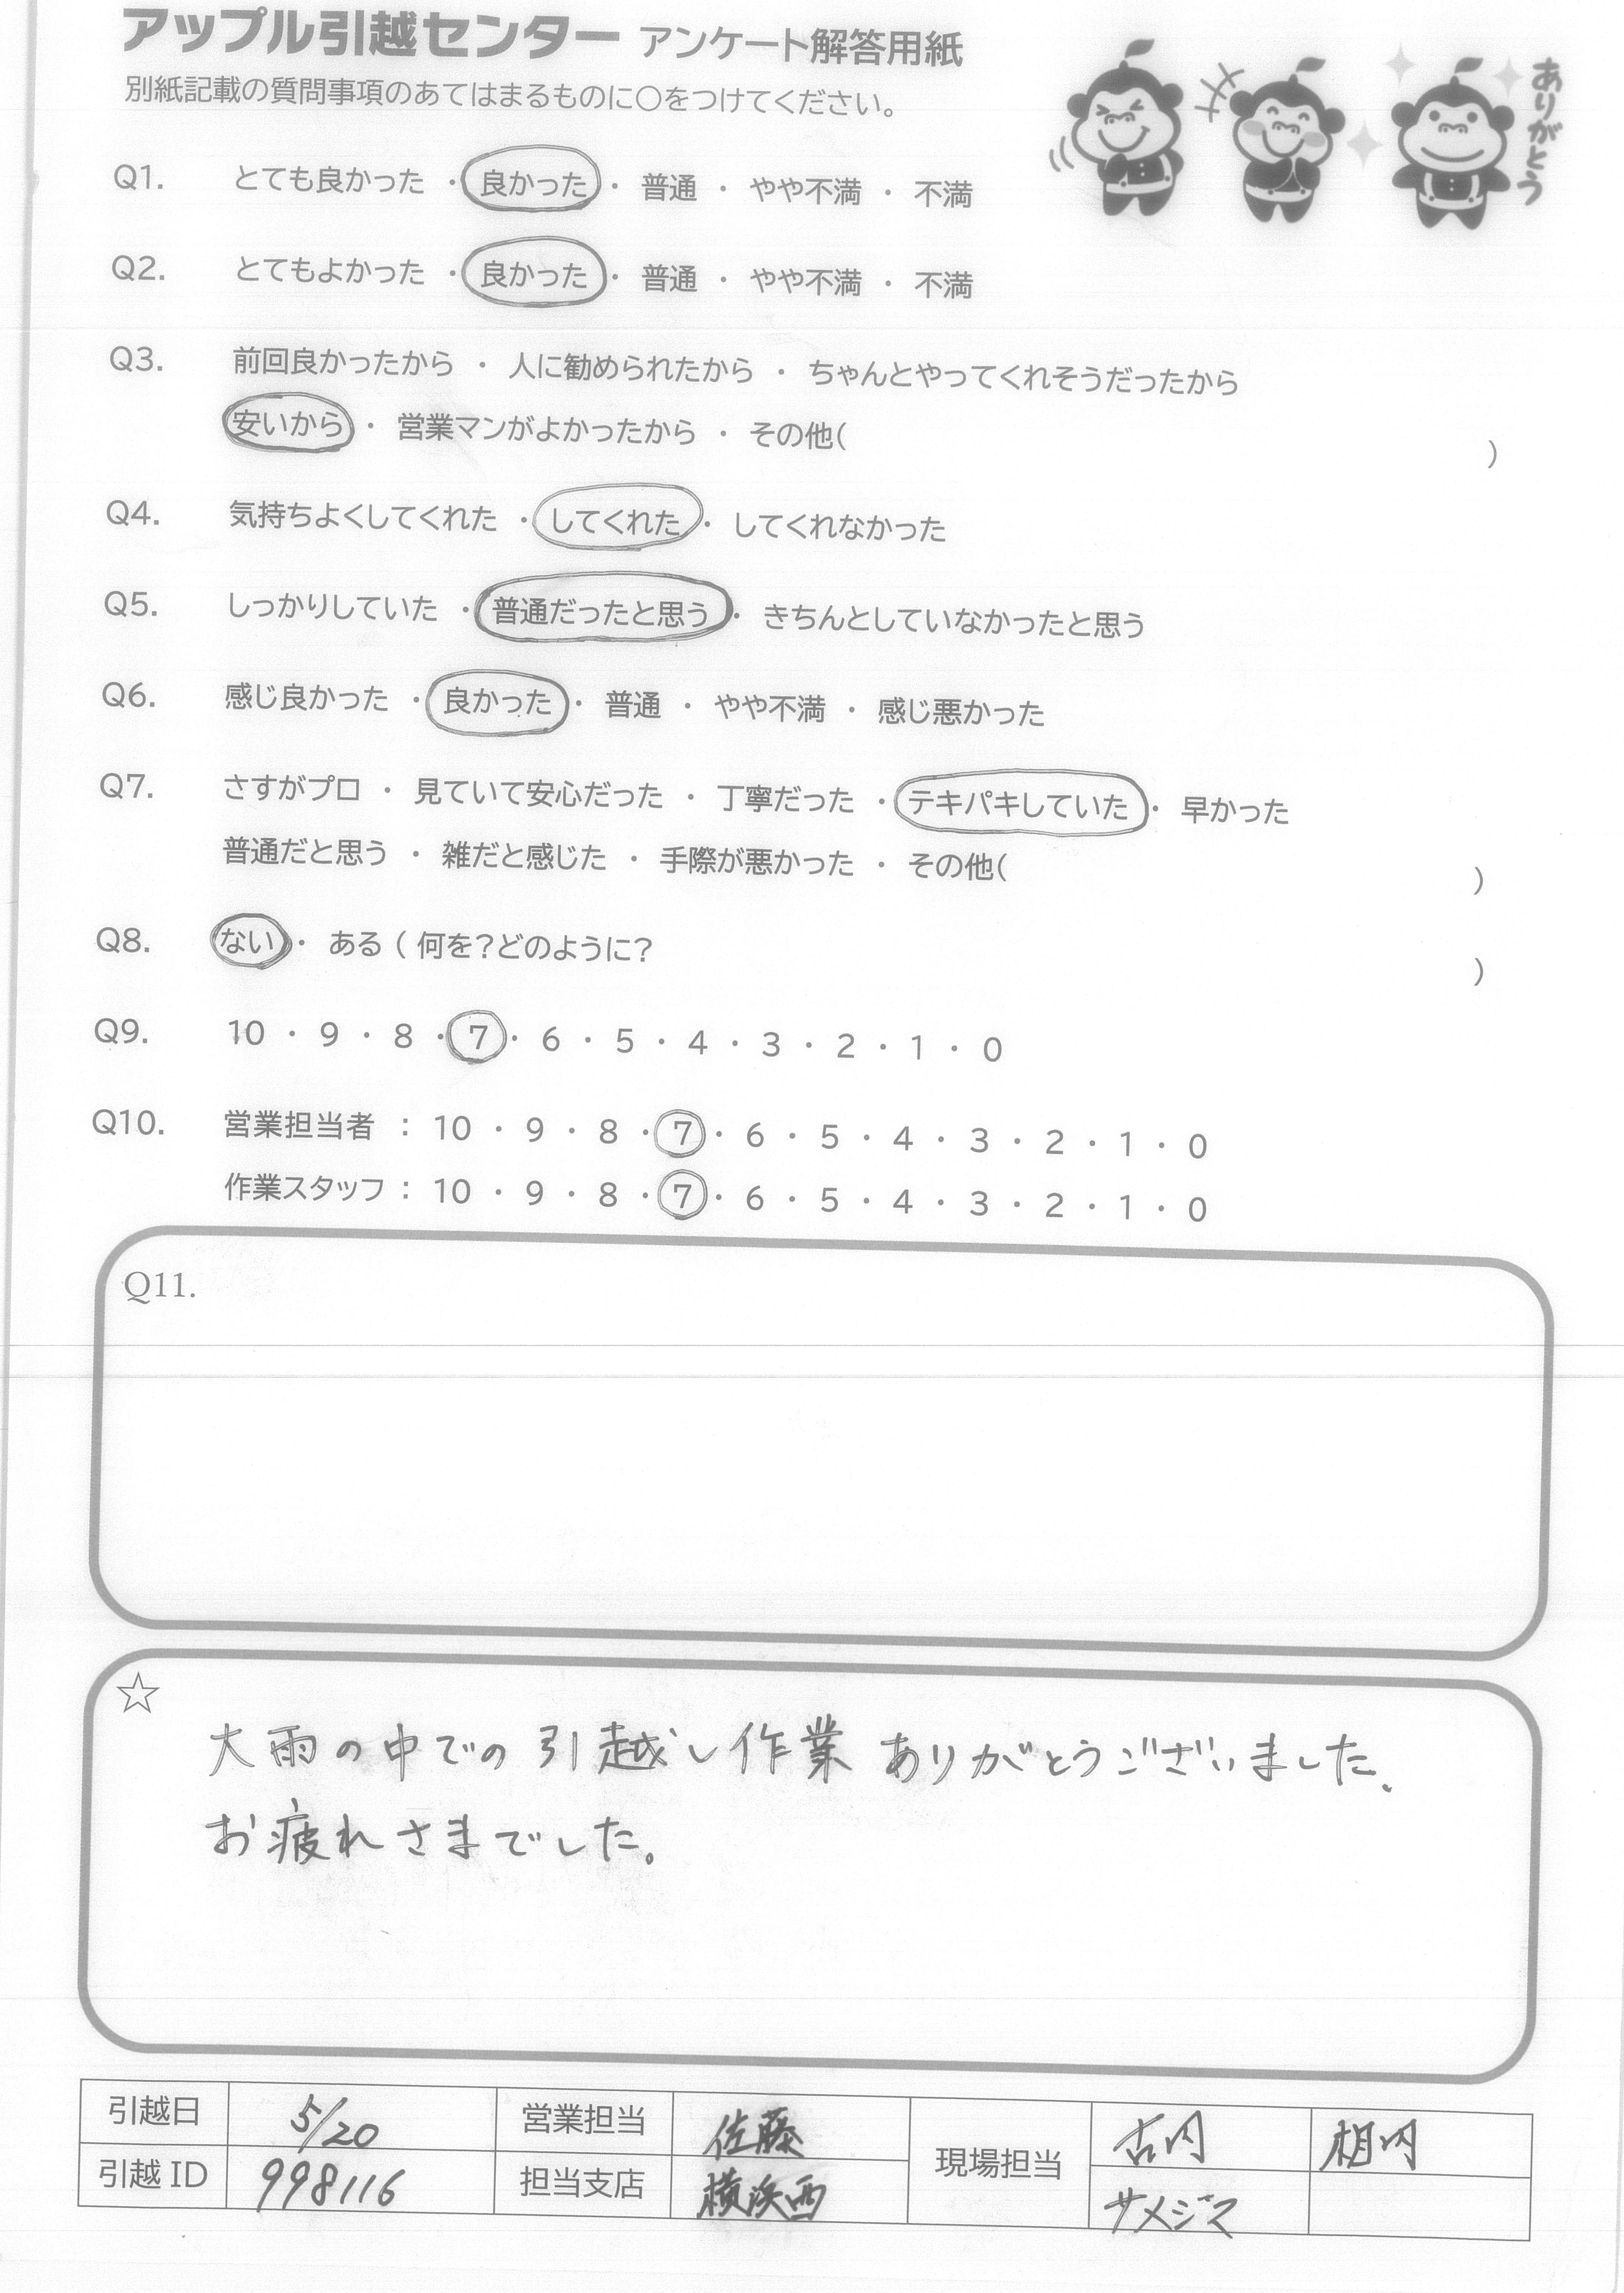 アップル引越センター アンケート解答用紙
別紙記載の質問事項のあてはまるものに○をつけてください。
ありがとう
Q1. とても良かった ・ 良かった ・ 普通 ・ やや不満 ・ 不満
Q2. とてもよかった ・ 良かった ・ 普通 ・ やや不満 ・ 不満
Q3. 前回良かったから ・ 人に勧められたから ・ ちゃんとやってくれそうだったから
安いから ・ 営業マンがよかったから ・ その他( )
Q4. 気持ちよくしてくれた ・ してくれた ・ してくれなかった
Q5. しっかりしていた ・ 普通だったと思う ・ きちんとしていなかったと思う
Q6. 感じ良かった ・ 良かった ・ 普通 ・ やや不満 ・ 感じ悪かった
Q7. さすがプロ ・ 見ていて安心だった ・ 丁寧だった ・ テキパキしていた ・ 早かった
普通だと思う ・ 雑だと感じた ・ 手際が悪かった ・ その他( )
Q8. ない ・ ある ( 何を?どのように? )
Q9. 10 ・ 9 ・ 8 ・ 7 ・ 6 ・ 5 ・ 4 ・ 3 ・ 2 ・ 1 ・ 0
Q10. 営業担当者 : 10 ・ 9 ・ 8 ・ 7 ・ 6 ・ 5 ・ 4 ・ 3 ・ 2 ・ 1 ・ 0
作業スタッフ : 10 ・ 9 ・ 8 ・ 7 ・ 6 ・ 5 ・ 4 ・ 3 ・ 2 ・ 1 ・ 0
Q11.
☆
大雨の中での引越し作業ありがとうございました、
お疲れさまでした。
引越日 5/20 営業担当 佐藤 現場担当 古内 相内
引越ID 998116 担当支店 横浜西 サメジマ